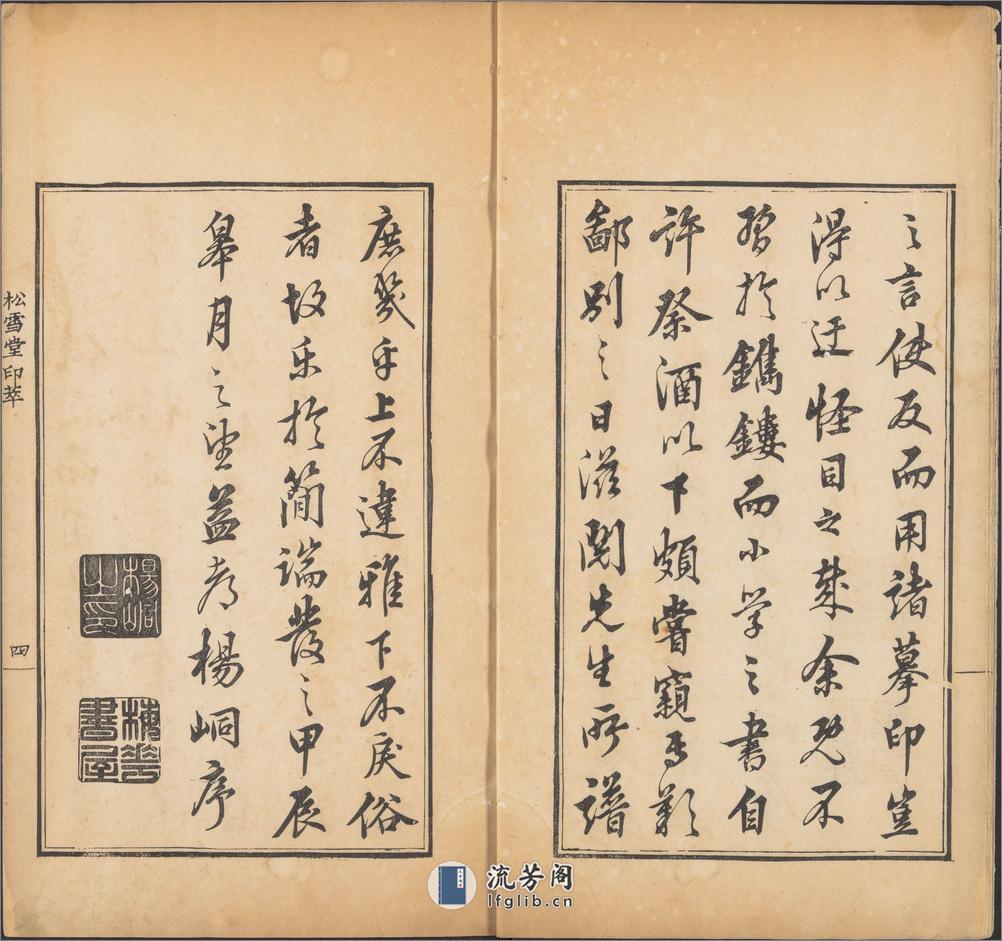 之言使反而用諸摹印豈
得以迂怪目之哉余既不
習於鐫鏤而小學之書自
許祭酒以下頗嘗窺焉歎
鄙別之日滋閱先生所譜
庶幾乎上不違雅下不戾俗
者故樂於簡端發之甲辰
皋月之望益都楊峒序
楊峒之印
書屋
松雪堂印萃
四
流芳阁
lfglib.cn